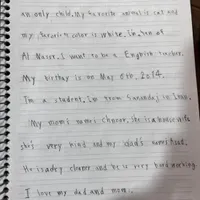 an only child. My favorite animal is cat and
my favorite color is white. I'm ten at
Al Naser. I want to be a English teacher.
My birthay is on May 6th, 2014.
I'm a student. I'm from Sanandaj in Iran.
My mom's name is, she is a housewife
she's very kind and my dad's name is
He is a dry cleaner and he is very hard working
I love my dad and mom.